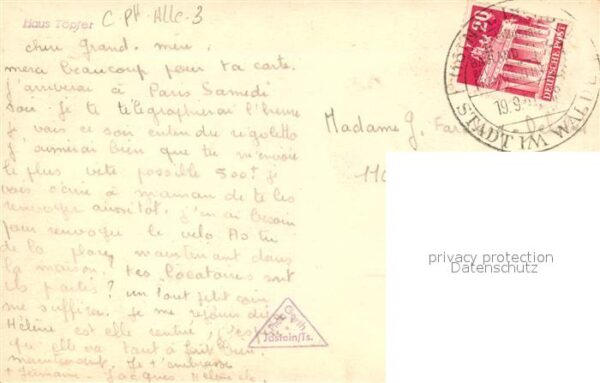 Haus Töpfer
C PH. Alle. 3
chère grand. mère.
merci beaucoup pour ta carte.
j'arriverai à Paris Samedi
soir je te télégraphierai l'heure
je vais ce soir entendre rigoletto
j'aimerai bien que tu m'envoie
le plus vite possible 500f je
vais écrire à maman de te les
renvoyer aussitôt. j'en ai besoin
pour renvoyer le vélo. As tu
de la place maintenant dans
la maison. tes locataires sont
ils partis? un tout petit coin
me suffira. je me réjouis
Hélène est elle rentrée,
qu'elle va tout à fait bien
maintenant. Je t'embrasse
Jacques
Madame G.
110
20
DEUTSCHE POST
19.9
STADT IM WALDE
Idstein/Ts.
privacy protection
Datenschutz